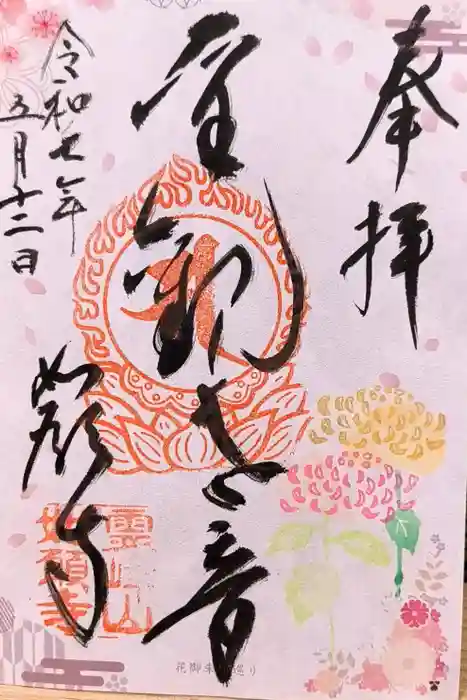 奉拝
聖観世音
令和七年
五月十二日
如願寺
如願寺
花御朱印巡り